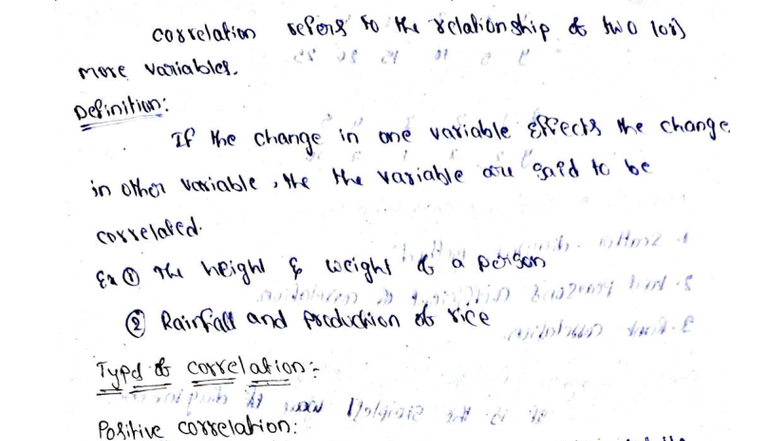 correlation refers to the relationship of two (or)
more variables.
Definition:
If the change in one variable effects the change
in other variable, the the variable are said to be
correlated.
Ex ① The height & weight of a person
② Rainfall and production of rice
Types of correlation:-
Positive correlation: